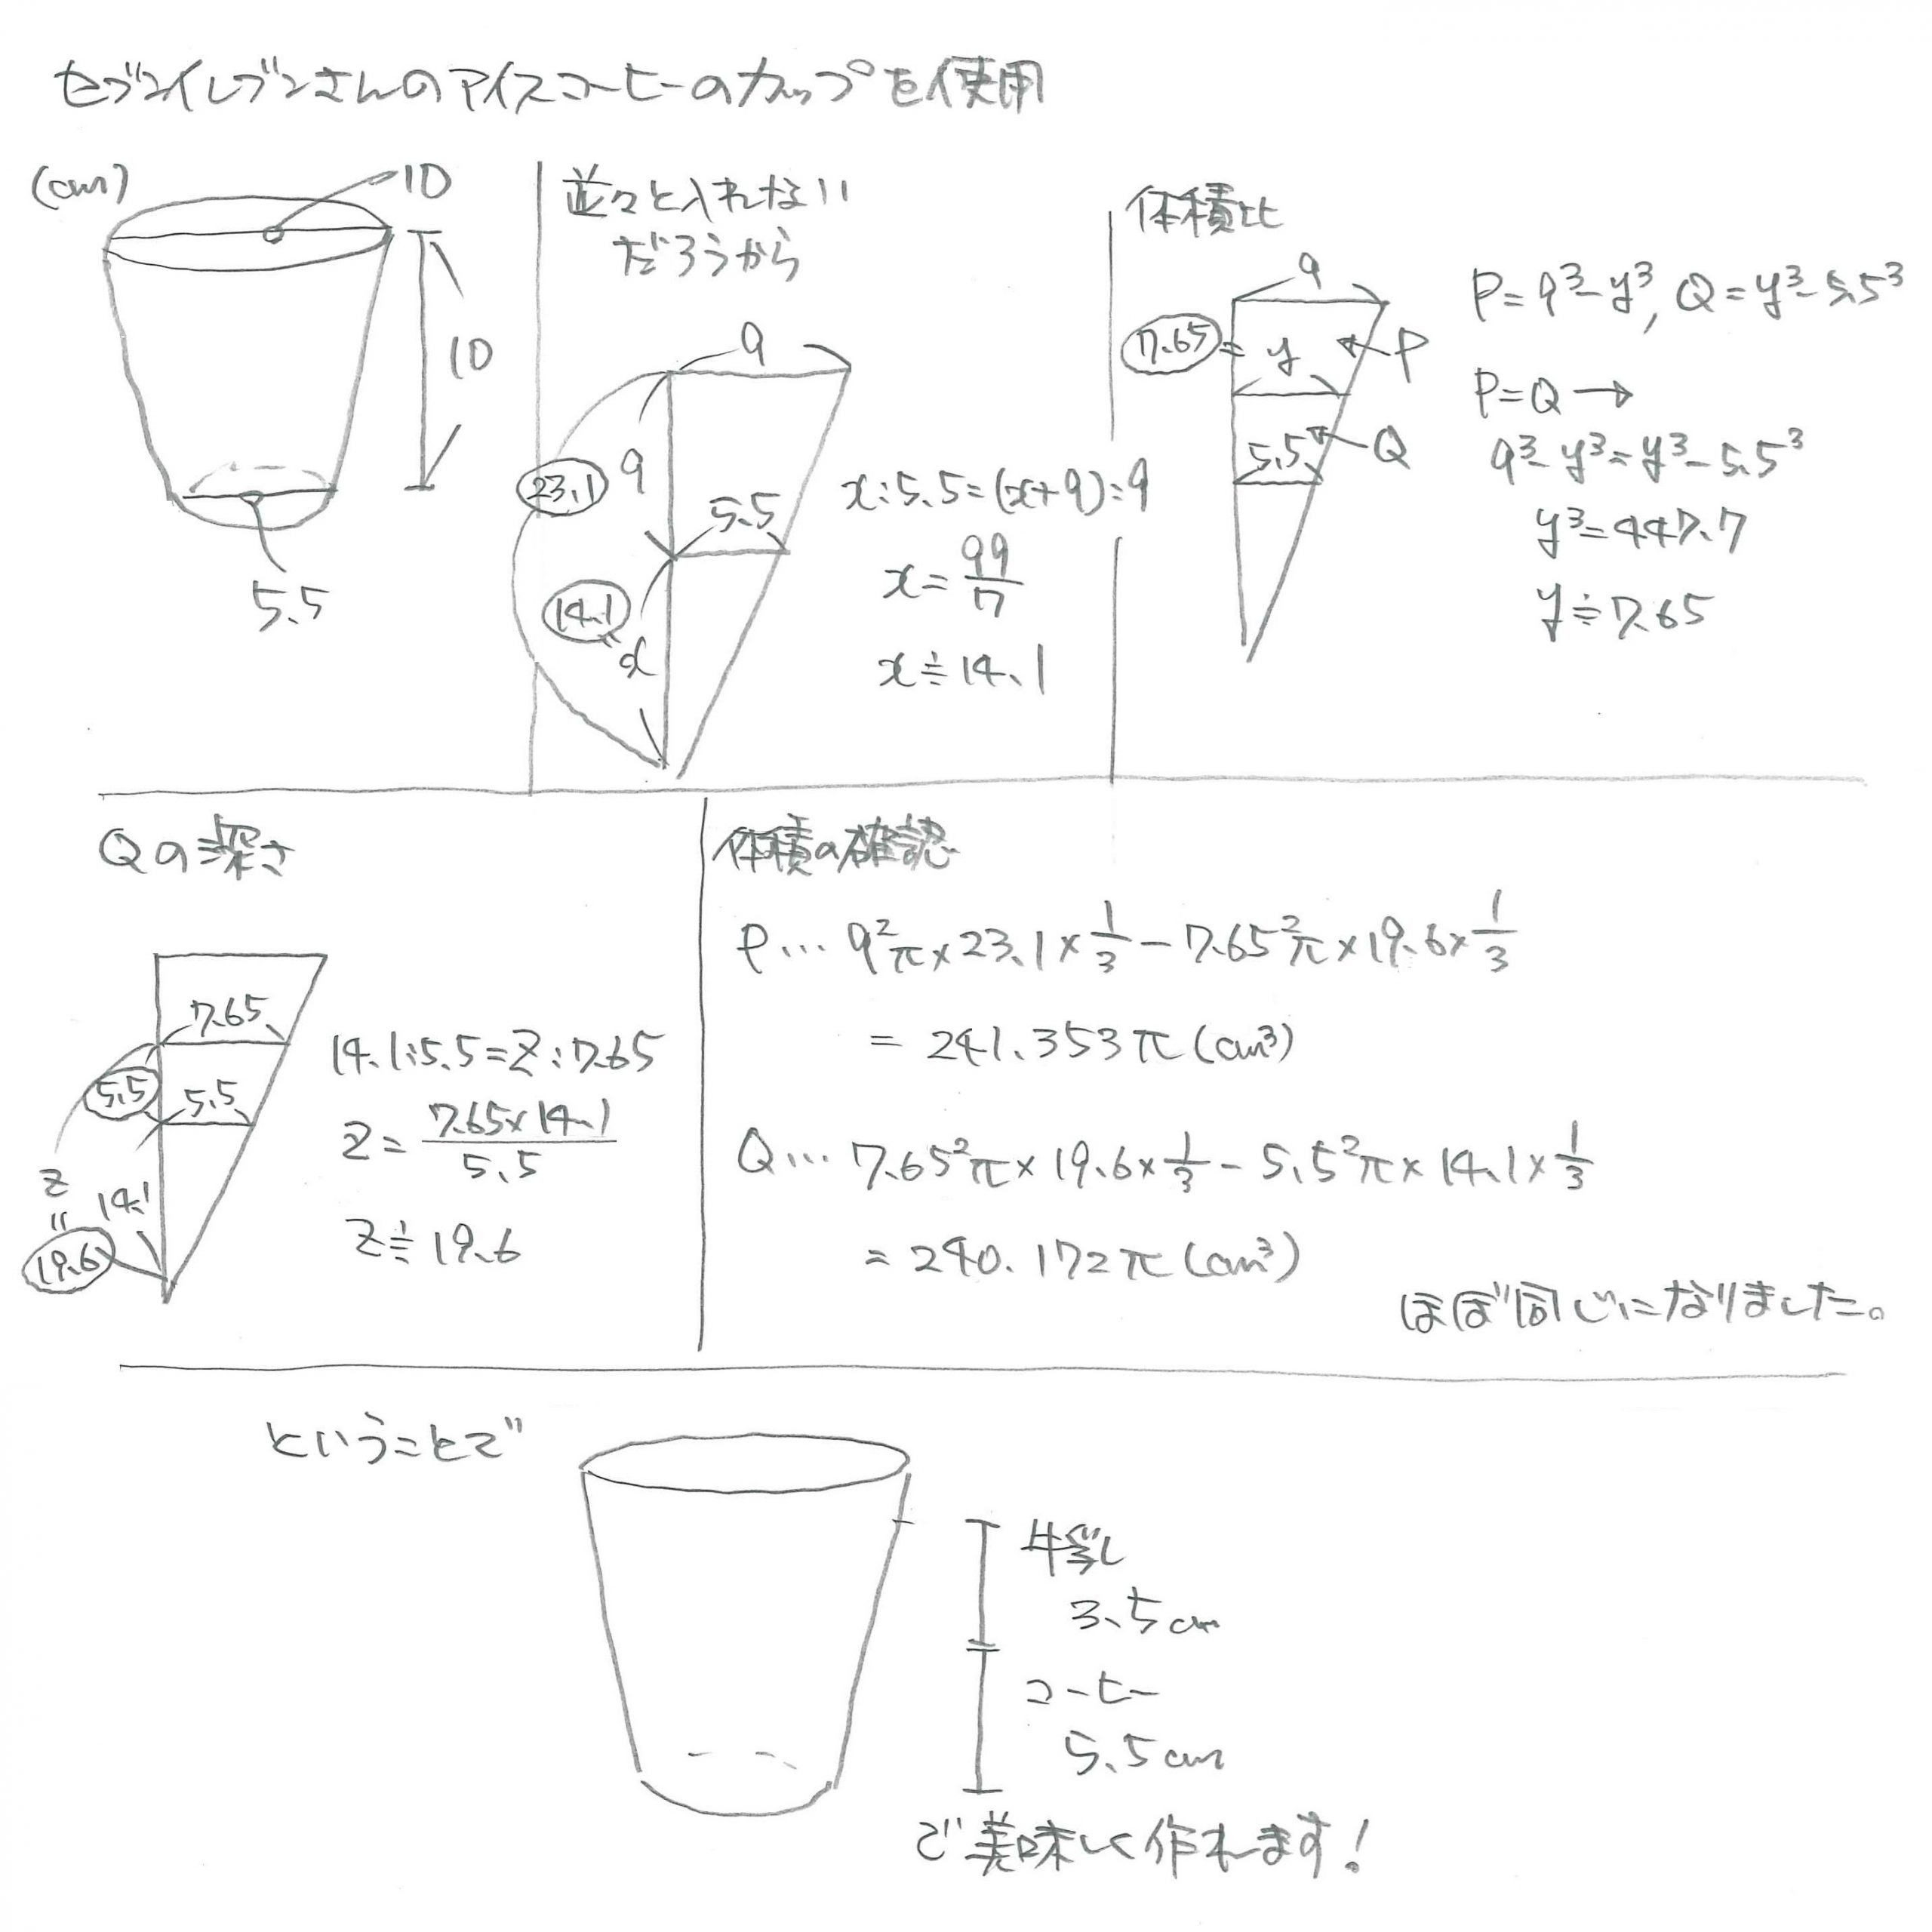 セブンイレブンさんのアイスコーヒーのカップを使用
(cm)
10
10
5.5
並々と入れない
だろうから
9
23.1
9
5.5
14.1
x
x:5.5=(x+9):9
x=99/7
x≒14.1
体積比
9
7.65=y
P
5.5
Q
P=9³-y³, Q=y³-5.5³
P=Q→
9³-y³=y³-5.5³
y³=447.7
y≒7.65
Qの深さ
7.65
5.5
5.5
z
=
19.6
14.1
14.1:5.5=z:7.65
z=7.65×14.1/5.5
z≒19.6
体積の確認
P… 9²π×23.1×1/3-7.65²π×19.6×1/3
= 241.353π(cm³)
Q… 7.65²π×19.6×1/3-5.5²π×14.1×1/3
= 240.172π(cm³)
ほぼ同じになりました。
ということで
牛乳
3.5cm
コーヒー
5.5cm
で美味しく作れます!